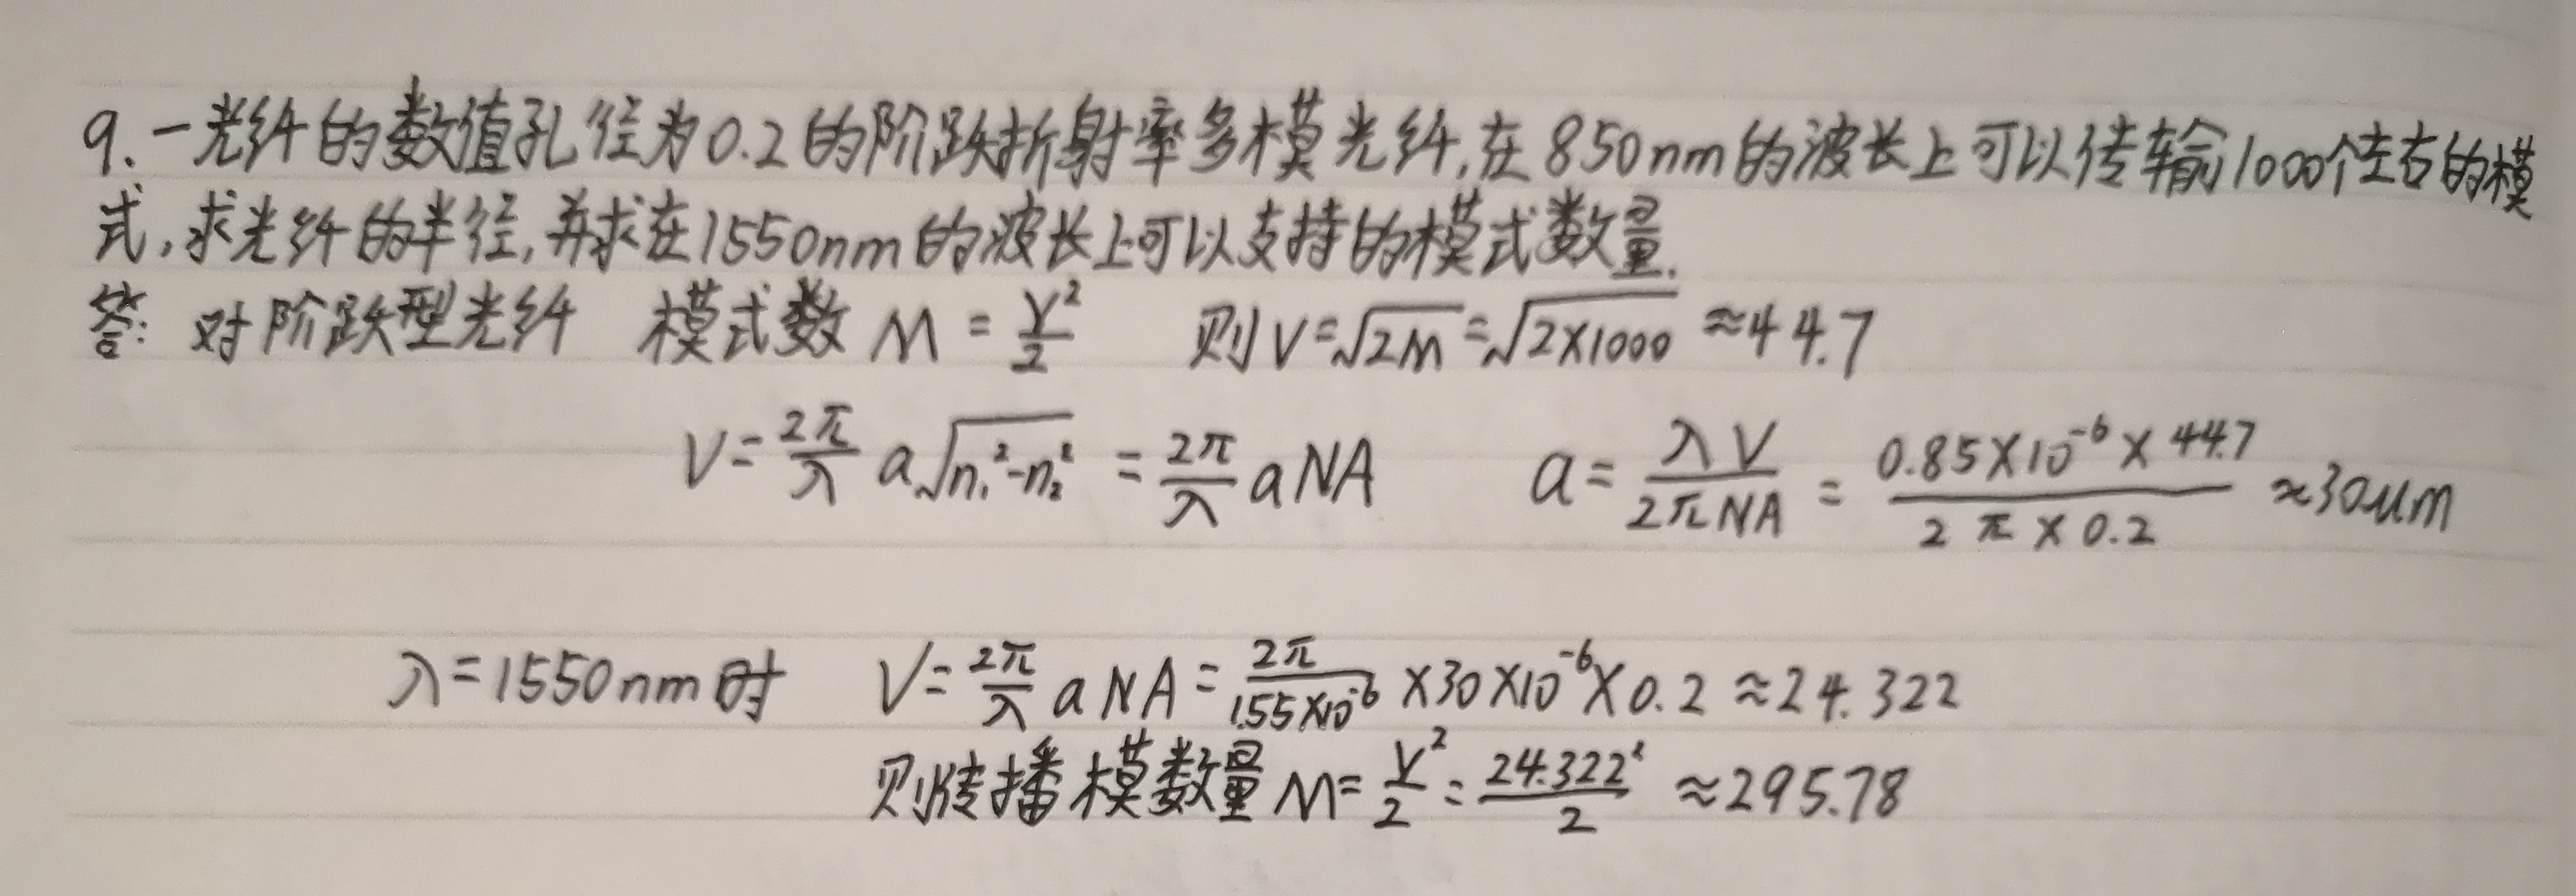 9.一光纤的数值孔径为0.2的阶跃折射率多模光纤,在850nm的波长上可以传输1000个左右的模
式,求光纤的半径,并求在1550nm的波长上可以支持的模式数量.
答: 对阶跃型光纤 模式数 M = V²/2 则V=√(2M)=√(2×1000) ≈44.7
V=2π/λ a√(n₁²-n₂²) = 2π/λ aNA a= λV/(2πNA) = (0.85×10⁻⁶×44.7)/(2π×0.2) ≈30μm
λ=1550nm时 V=2π/λ aNA=2π/(1.55×10⁻⁶) ×30×10⁻⁶×0.2 ≈24.322
则传播模数量M=V²/2=24.322²/2 ≈295.78